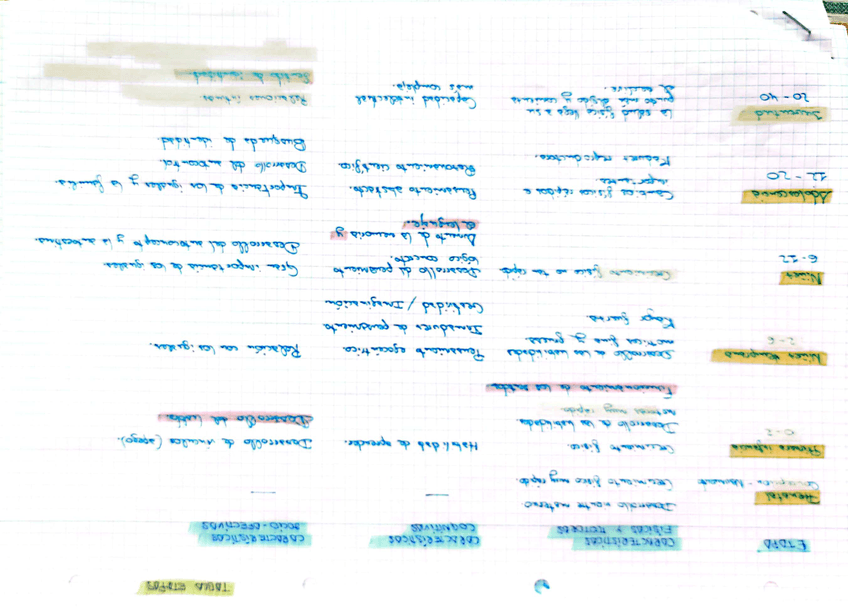 TABLA ETAPAS
ETAPA
CARACTERÍSTICAS FÍSICAS Y MOTORAS
CARACTERÍSTICAS COGNITIVAS
CARACTERÍSTICAS SOCIO-AFECTIVAS
Prenatal
Concepción - Nacimiento
Desarrollo vientre materno
Crecimiento físico muy rápido.
—
—
Primera infancia
0-2
Crecimiento físico.
Desarrollo de las habilidades
motoras muy rápido.
Funcionamiento de los sentidos
Habilidad de aprender.
Desarrollo de vínculos (apego).
Desarrollo del habla.
Niñez temprana
2-6
Desarrollo de las habilidades
motrices fina y gruesa.
Mayor fuerza
Pensamiento egocéntrico.
Inmadurez de pensamiento
Creatividad / Imaginación
Relación con los iguales.
Niñez
6-12
Crecimiento físico no tan rápido
Desarrollo del pensamiento
lógico concreto.
Aumento de la memoria y
el lenguaje.
Gran importancia de los iguales
Desarrollo del autoconcepto y la autoestima.
Adolescencia
12-20
Cambios físicos rápidos e
importantes.
Madurez reproductora.
Pensamiento abstracto.
Razonamiento científico.
Importancia de los iguales y la familia.
Desarrollo del autocontrol.
Búsqueda de identidad.
Juventud
20-40
La salud física llega a su
punto más álgido y comienza
a
Capacidad intelectual
más compleja.
Relaciones íntimas
Sentido de identidad.